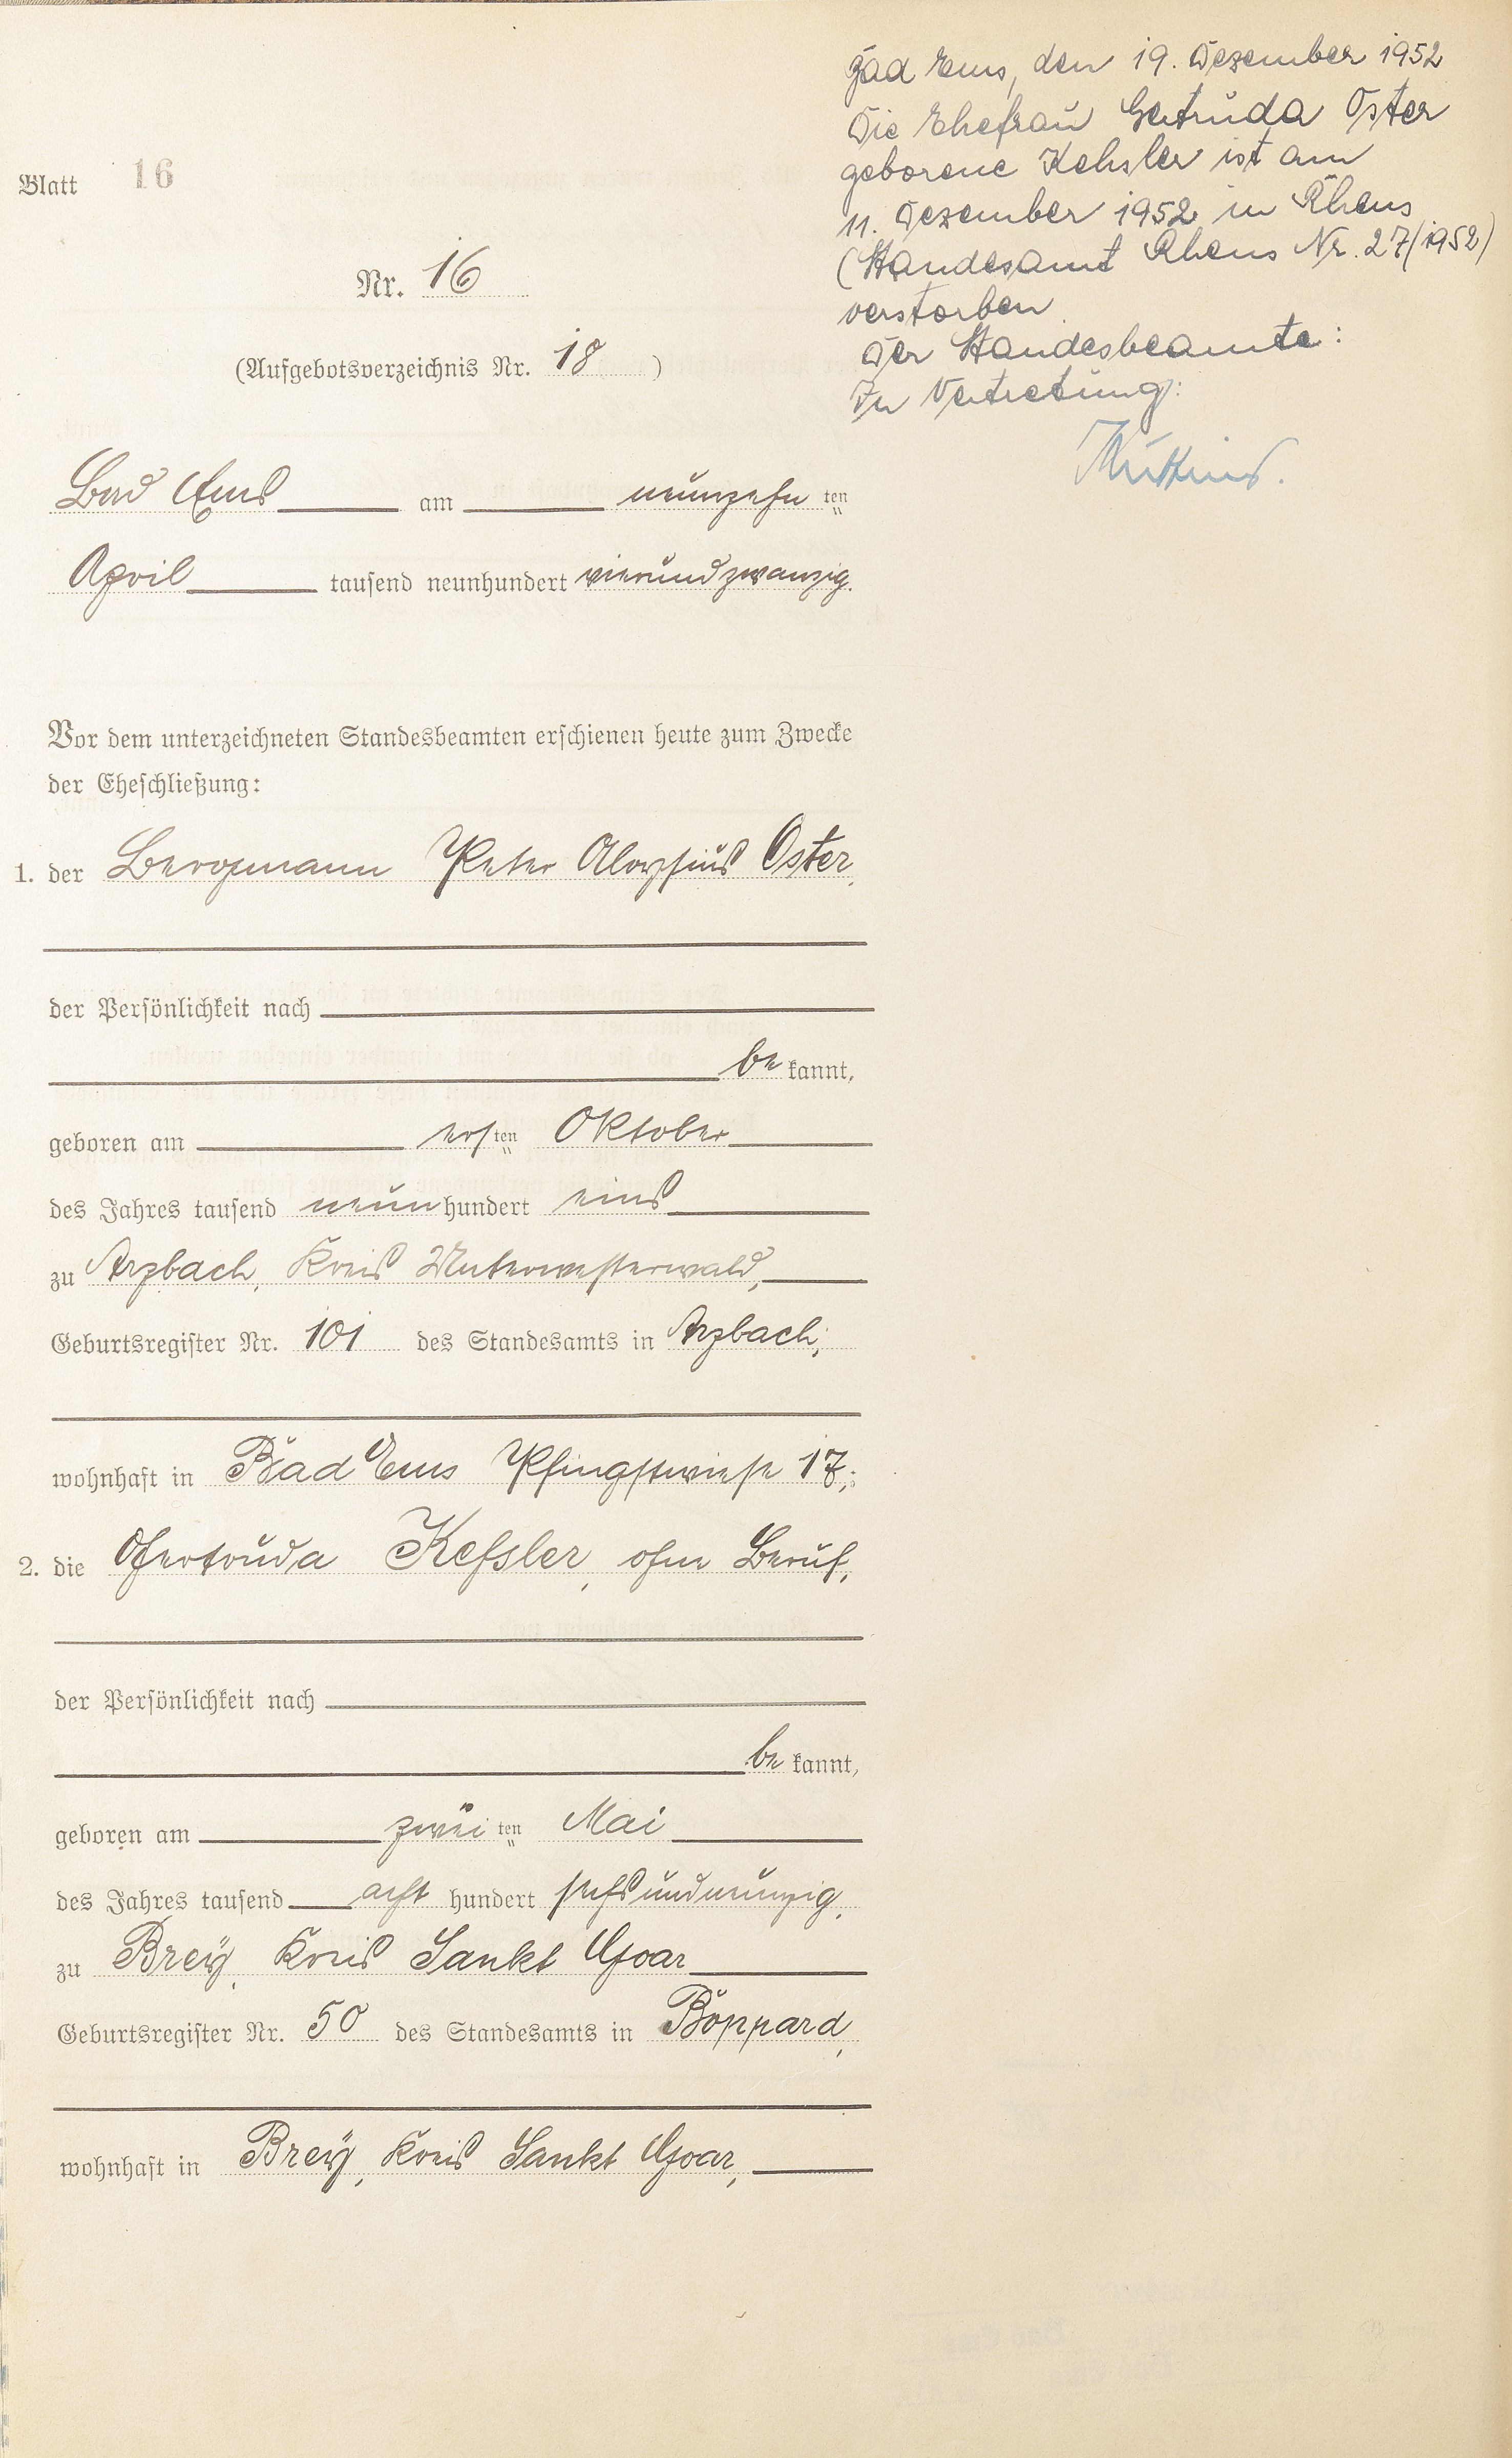 Blatt 16
Nr. 16
(Aufgebotsverzeichnis Nr. 18)
Bad Ems am neunzehnten
April tausend neunhundert vierundzwanzig.
Vor dem unterzeichneten Standesbeamten erschienen heute zum Zwecke
der Eheschließung:
1. der Bergmann Peter Aloysius Oster,
der Persönlichkeit nach
bekannt,
geboren am ersten Oktober
des Jahres tausend neunhundert eins
zu Arzbach, Kreis Unterwesterwald,
Geburtsregister Nr. 101 des Standesamts in Arzbach,
wohnhaft in Bad Ems Pfingstwiese 17;
2. die Gertruda Keßler, ohne Beruf,
der Persönlichkeit nach
bekannt,
geboren am zweiten Mai
des Jahres tausend acht hundert sechsundneunzig,
zu Breÿ, Kreis Sankt Goar
Geburtsregister Nr. 50 des Standesamts in Boppard,
wohnhaft in Breÿ, Kreis Sankt Goar,
Bad Ems, den 19. Dezember 1952
Die Ehefrau Gertruda Oster
geborene Kehsler ist am
11. Dezember 1952 in Rhens
(Standesamt Rhens Nr. 27/1952)
verstorben.
Der Standesbeamte:
In Vertretung: